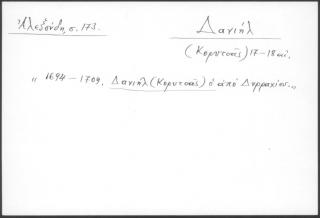 Ἀλεξούδη, σ. 173.
Δανιήλ
(Κορυτσᾶς) 17-18 αἰ.
" 1694-1709, Δανιήλ (Κορυτσᾶς) ὁ ἀπό Δυρραχίου.„